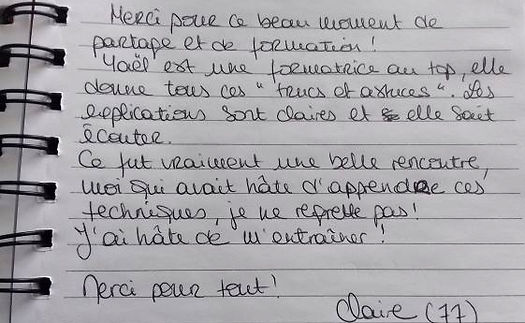 Merci pour ce beau moment de
partage et de formation !
Yaël est une formatrice au top, elle
donne tous ces "trucs et astuces". Les
explications sont claires et elle sait
écouter.
Ce fut vraiment une belle rencontre,
moi qui avait hâte d'apprendre ces
techniques, je ne regrette pas !
J'ai hâte de m'entraîner !
Merci pour tout !
Claire (77)